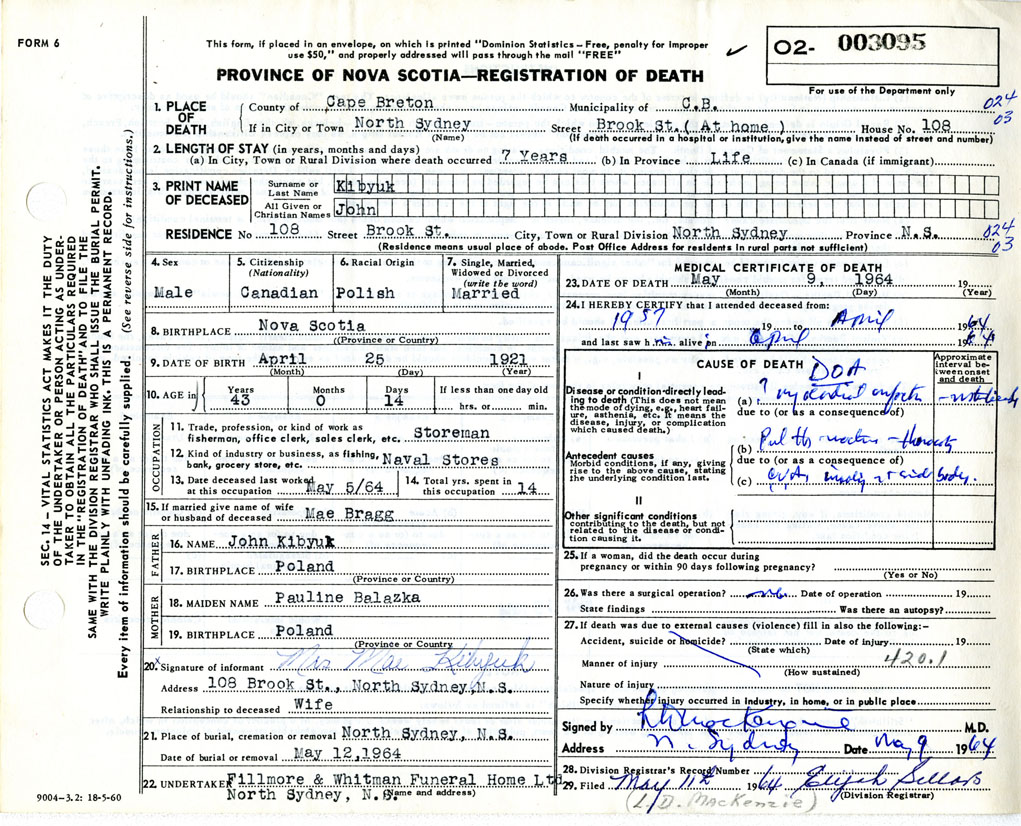 FORM 6
This form, if placed in an envelope, on which is printed "Dominion Statistics – Free, penalty for improper
use $50," and properly addressed will pass through the mail "FREE"
PROVINCE OF NOVA SCOTIA—REGISTRATION OF DEATH
O2- 003095
For use of the Department only
024
03
1. PLACE OF DEATH
County of Cape Breton Municipality of C.B.
If in City or Town North Sydney Street Brook St. ( At home ) House No. 108
(Name) (If death occurred in a hospital or institution, give the name instead of street and number)
2. LENGTH OF STAY (in years, months and days)
(a) In City, Town or Rural Division where death occurred 7 Years (b) In Province Life (c) In Canada (if immigrant)
3. PRINT NAME OF DECEASED
Surname or Last Name Kibyuk
All Given or Christian Names John
RESIDENCE No 108 Street Brook St. City, Town or Rural Division North Sydney Province N.S.
024
03
(Residence means usual place of abode. Post Office Address for residents in rural parts not sufficient)
4. Sex
Male
5. Citizenship
(Nationality)
Canadian
6. Racial Origin
Polish
7. Single, Married, Widowed or Divorced
(write the word)
Married
8. BIRTHPLACE Nova Scotia
(Province or Country)
9. DATE OF BIRTH April 25 1921
(Month) (Day) (Year)
10. AGE in
Years 43
Months 0
Days 14
If less than one day old
hrs. or min.
OCCUPATION
11. Trade, profession, or kind of work as
fisherman, office clerk, sales clerk, etc. Storeman
12. Kind of industry or business, as fishing,
bank, grocery store, etc. Naval Stores
13. Date deceased last worked
at this occupation May 5/64
14. Total yrs. spent in
this occupation 14
15. If married give name of wife
or husband of deceased Mae Bragg
FATHER
16. NAME John Kibyuk
17. BIRTHPLACE Poland
(Province or Country)
MOTHER
18. MAIDEN NAME Pauline Balazka
19. BIRTHPLACE Poland
(Province or Country)
20. x Signature of informant Mrs Mae Kibyuk
Address 108 Brook St., North Sydney, N.S.
Relationship to deceased Wife
21. Place of burial, cremation or removal North Sydney, N.S.
Date of burial or removal May 12,1964
22. UNDERTAKER Fillmore & Whitman Funeral Home Ltd
North Sydney, N.S. (Name and address)
MEDICAL CERTIFICATE OF DEATH
23. DATE OF DEATH May 9, 1964 19
(Month) (Day) (Year)
24. I HEREBY CERTIFY that I attended deceased from:
1957 19 to April 1964
and last saw h im alive on April 1964
CAUSE OF DEATH DOA
Approximate interval between onset and death
I
Disease or condition directly leading to death (This does not mean the mode of dying, e.g., heart failure, asthenia, etc. It means the disease, injury, or complication which caused death.)
(a) ?
due to (or as a consequence of)
Antecedent causes
Morbid conditions, if any, giving rise to the above cause, stating the underlying condition last.
(b)
due to (or as a consequence of)
(c)
II
Other significant conditions
contributing to the death, but not related to the disease or condition causing it.
25. If a woman, did the death occur during
pregnancy or within 90 days following pregnancy?
(Yes or No)
26. Was there a surgical operation? no Date of operation 19
State findings Was there an autopsy?
27. If death was due to external causes (violence) fill in also the following:–
Accident, suicide or homicide? Date of injury 19
(State which)
420.1
Manner of injury
(How sustained)
Nature of injury
Specify whether injury occurred in industry, in home, or in public place
Signed by L D MacKenzie M.D.
Address N. Sydney Date May 9 1964
28. Division Registrar's Record Number
29. Filed May 11th 1964 Elijah Sellars
(L. D. MacKenzie) (Division Registrar)
SEC. 14 – VITAL STATISTICS ACT MAKES IT THE DUTY
OF THE UNDERTAKER OR PERSON ACTING AS UNDER-
TAKER TO OBTAIN ALL THE PARTICULARS REQUIRED
IN THE "REGISTRATION OF DEATH" AND TO FILE THE
SAME WITH THE DIVISION REGISTRAR WHO SHALL ISSUE THE BURIAL PERMIT.
WRITE PLAINLY WITH UNFADING INK. THIS IS A PERMANENT RECORD.
Every item of information should be carefully supplied. (See reverse side for instructions.)
9004-3.2: 18-5-60